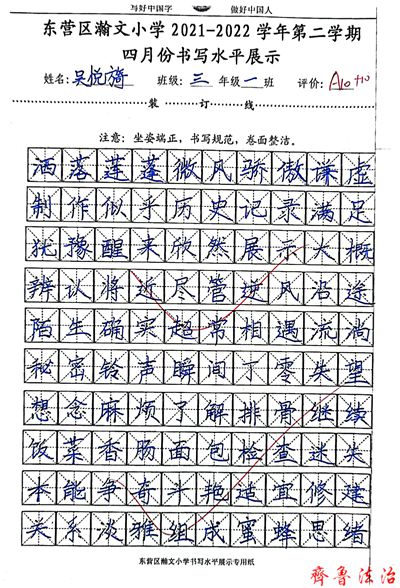 写好中国字 做好中国人
东营区瀚文小学2021-2022学年第二学期
四月份书写水平展示
姓名:吴悦旖 班级:三 年级一班 评价:A10 +10
装 订 线
注意:坐姿端正,书写规范,卷面整洁。
洒落莲蓬微风骄傲谦虚
制作似乎历史记录满足
犹豫醒来欣然展示大概
辨认将近尽管逆风沿途
陌生确实超常相遇流淌
秘密铃声瞬间丁零失望
想念麻烦了解排骨继续
饭菜香肠面包检查迷失
本能争奇斗艳适宜修建
关系淡雅组成蜜蜂思绪
东营区瀚文小学书写水平展示专用纸
齐鲁法治